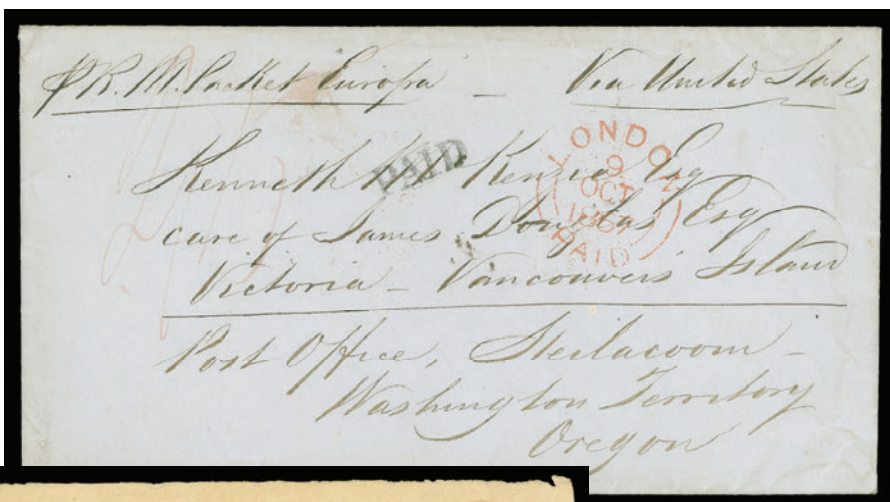 pr R. M. Packet Europa _ Via United States
PAID
LONDON
9
OCT
PAID
Kenneth Mc Kenzie Esq
care of James Douglas Esq
Victoria _ Vancouver's Island
Post Office, Steilacoom _
Washington Territory
Oregon